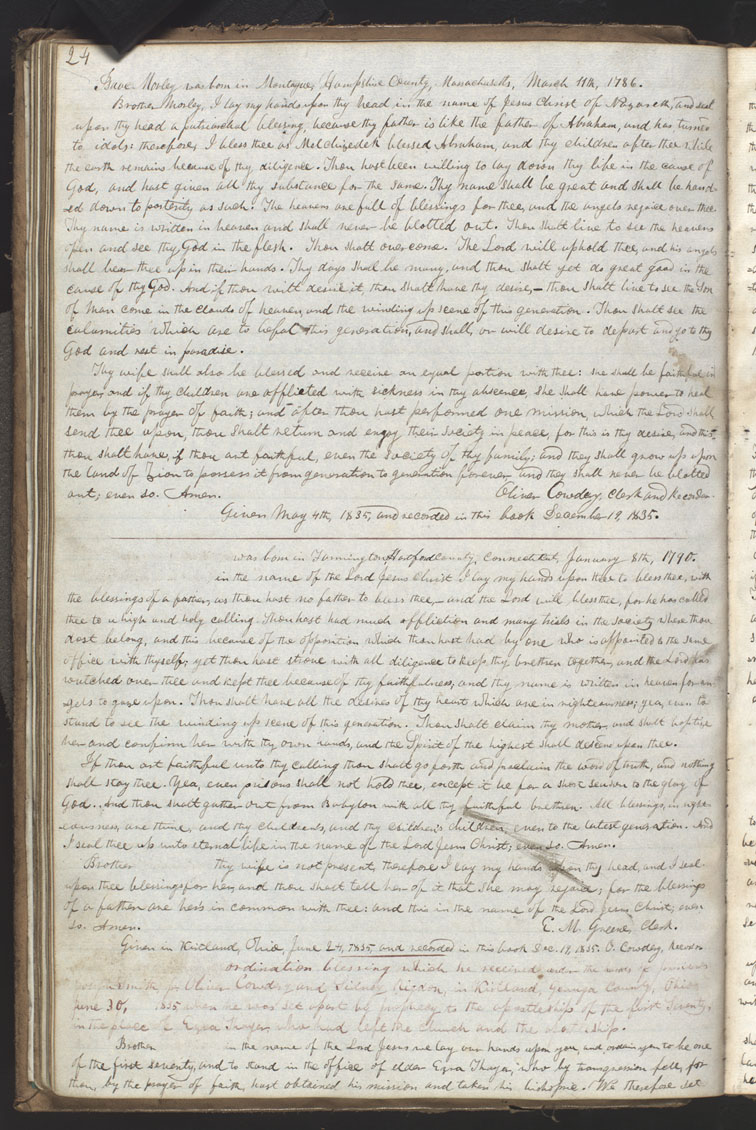 24
Isaac Morley was born in Montague, Hampshire County, Massachusetts, March 11th, 1786.
Brother Morley, I lay my hands upon thy head in the name of Jesus Christ of Nazareth, and seal
upon thy head a patriarchal blessing, because thy father is like the father of Abraham, and has turned
to idols: therefore, I bless thee as Melchizedek blessed Abraham, and thy children after thee while
the earth remains because of thy diligence. Thou hast been willing to lay down thy life in the cause of
God, and hast given all thy substance for the same. Thy name shall be great and shall be hand-
ed down to posterity as such. The heavens are full of blessings for thee, and the angels rejoice over thee.
Thy name is written in heaven and shall never be blotted out. Thou shalt live to see the heavens
open and see thy God in the flesh. Thou shalt overcome. The Lord will uphold thee, and his angels
shall bear thee up in their hands. Thy days shall be many, and thou shalt yet do great good in the
cause of thy God. And if thou wilt desire it thou shalt have thy desire,— thou shalt live to see the Son
of Man come in the clouds of heaven, and the winding up scene of this generation. Thou shalt see the
calamities which are to befal this generation, and shall, or will desire to depart and go to thy
God and rest in paradise.
Thy wife shall also be blessed and receive an equal portion with thee: she shall be faithful in
prayer, and if thy children are afflicted with sickness in thy absence, she shall have power to heal
them by the prayer of faith; and after thou hast performed one mission, which the Lord shall
send thee upon, thou shalt return and enjoy their society in peace, for this is thy desire, and this
thou shalt have, if thou art faithful, even the society of thy family; and they shall grow up upon
the land of Zion to possess it from generation to generation forever and they shall never be blotted
out; even so. Amen. Oliver Cowdery, Clerk and Recorder.
Given May 4th, 1835, and recorded in this book December 19, 1835.
was born in Farmington, Hartford County, Connecticut, January 8th, 1790.
in the name of the Lord Jesus Christ I lay my hands upon thee to bless thee, with
the blessings of a father, as thou hast no father to bless thee,— and the Lord will bless thee, for he has called
thee to a high and holy calling. Thou hast had much affliction and many trials in the society where thou
dost belong, and this because of the opposition which thou hast had by one who is appointed to the same
office with thyself; yet thou hast strove with all diligence to keep thy brethren together, and the Lord has
watched over thee and kept thee because of thy faithfulness, and thy name is written in heaven for an-
gels to gaze upon. Thou shalt have all the desires of thy heart which are in righteousness; yea, even to
stand to see the winding up scene of this generation. Thou shalt claim thy mother and shalt baptise
her and confirm her with thy own hands, and the Spirit of the highest shall descend upon thee.
If thou art faithful unto thy calling thou shall go forth and proclaim the word of truth, and nothing
shall stay thee. Yea, even prisons shall not hold thee, except it be for a short season to the glory of
God. And thou shalt gather out from Babylon with all thy faithful brethren. All blessings, in right-
eousness, are thine, and thy children's, and thy children's children, even to the latest generation. And
I seal thee up unto eternal life in the name of the Lord Jesus Christ; even so. Amen.
Brother thy wife is not present, therefore I lay my hands upon thy head, and I seal
upon thee blessings for her, and thou shalt tell her of it that she may rejoice; for the blessings
of a father are her's in common with thee: and this in the name of the Lord Jesus Christ; even
so. Amen. E. M. Greene, Clerk.
Given in Kirtland, Ohio, June 24, 1835, and recorded in this book Dec. 19, 1835. O. Cowdery, Recorder
ordination blessing which he received under the hands of
Joseph Smith, jr. Oliver Cowdery and Sidney Rigdon, in Kirtland, Geauga County, Ohio,
June 30, 1835 when he was set apart by prophecy to the apostleship of the first Seventy,
in the place of Ezra Thayer who had left the church and the apostleship.
Brother in the name of the Lord Jesus we lay our hands upon you, and ordain you to be one
of the first seventy, and to stand in the office of elder Ezra Thayer, who by transgression fell, for
thou, by the prayer of faith, hast obtained his mission and taken his bishopric. We therefore set